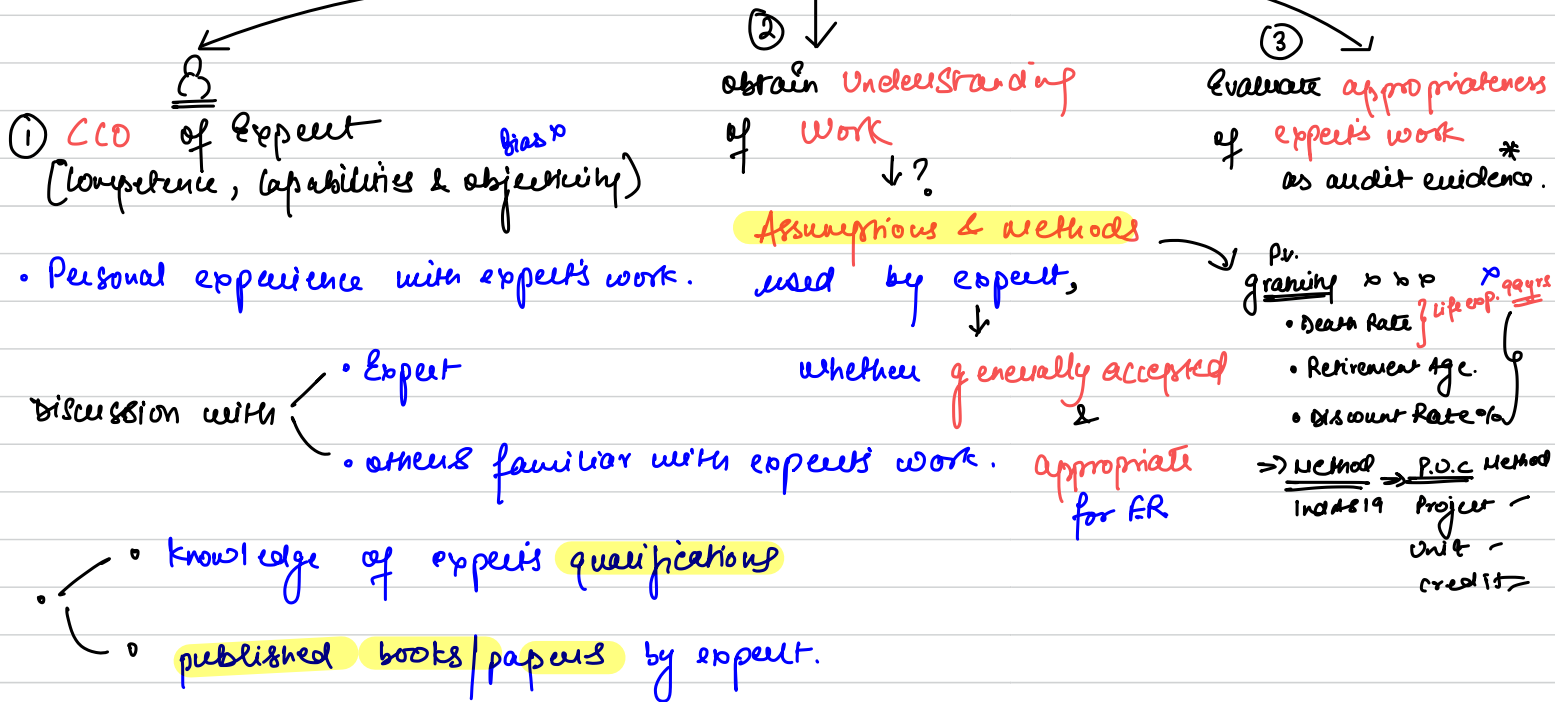 ① CCO of Expert
Bias ×
(Competence, Capabilities & objectivity)
• Personal experience with expert's work.
Discussion with
• Expert
• others familiar with expert's work.
• knowledge of expert's qualifications
• published books/papers by expert.
②
obtain Understanding
of Work
↓ ?
Assumptions & Methods
used by expert,
↓
whether generally accepted
&
appropriate
for FR
③
Evaluate appropriateness
of expert's work *
as audit evidence.
P.V.
× × × ×
• Death Rate } Life exp. 99yrs
• Retirement Age.
• Discount Rate %
⇒ Method ⇒ P.U.C Method
Ind AS 19
Project
Unit
credit